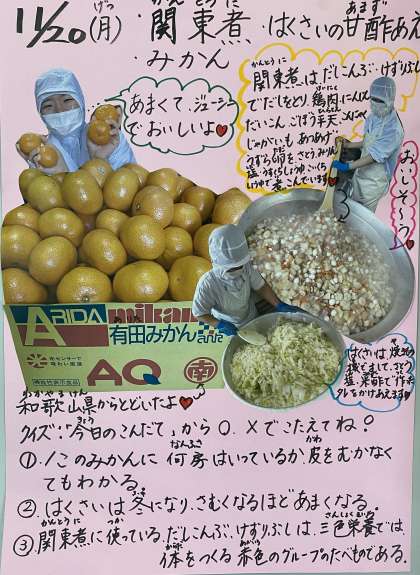 11/20(月)・関東煮・はくさいの甘酢あん
・みかん
あまくて、ジューシー
でおいしいよ
関東煮は、だしこんぶ・けずりぶし
でだしをとり、鶏肉、にんじん
だいこん、ごぼう平天、こんにゃく
じゃがいも、あつあげ、
うずら卵をさとう、みりん
塩、うすくちしょうゆ、こいくち
しょうゆで煮こんでいます
おいしそ〜う
ARIDA mikan
有田みかん
光センサーで
味わい選果
機能性表示食品
AQ
南
はくさいは焼物
機でむして、さとう
塩、米酢で作った
タレをかけあえます
和歌山県からとどいたよ
クイズ:「今日のこんだて」から○、×でこたえてね?
①、1このみかんに何房はいっているか、皮をむかなく
てもわかる。
②、はくさいは冬になり、さむくなるほどあまくなる。
③、関東煮に使っている、だしこんぶ、けずりぶしは、三色栄養では、
体をつくる赤色のグループのたべものである。